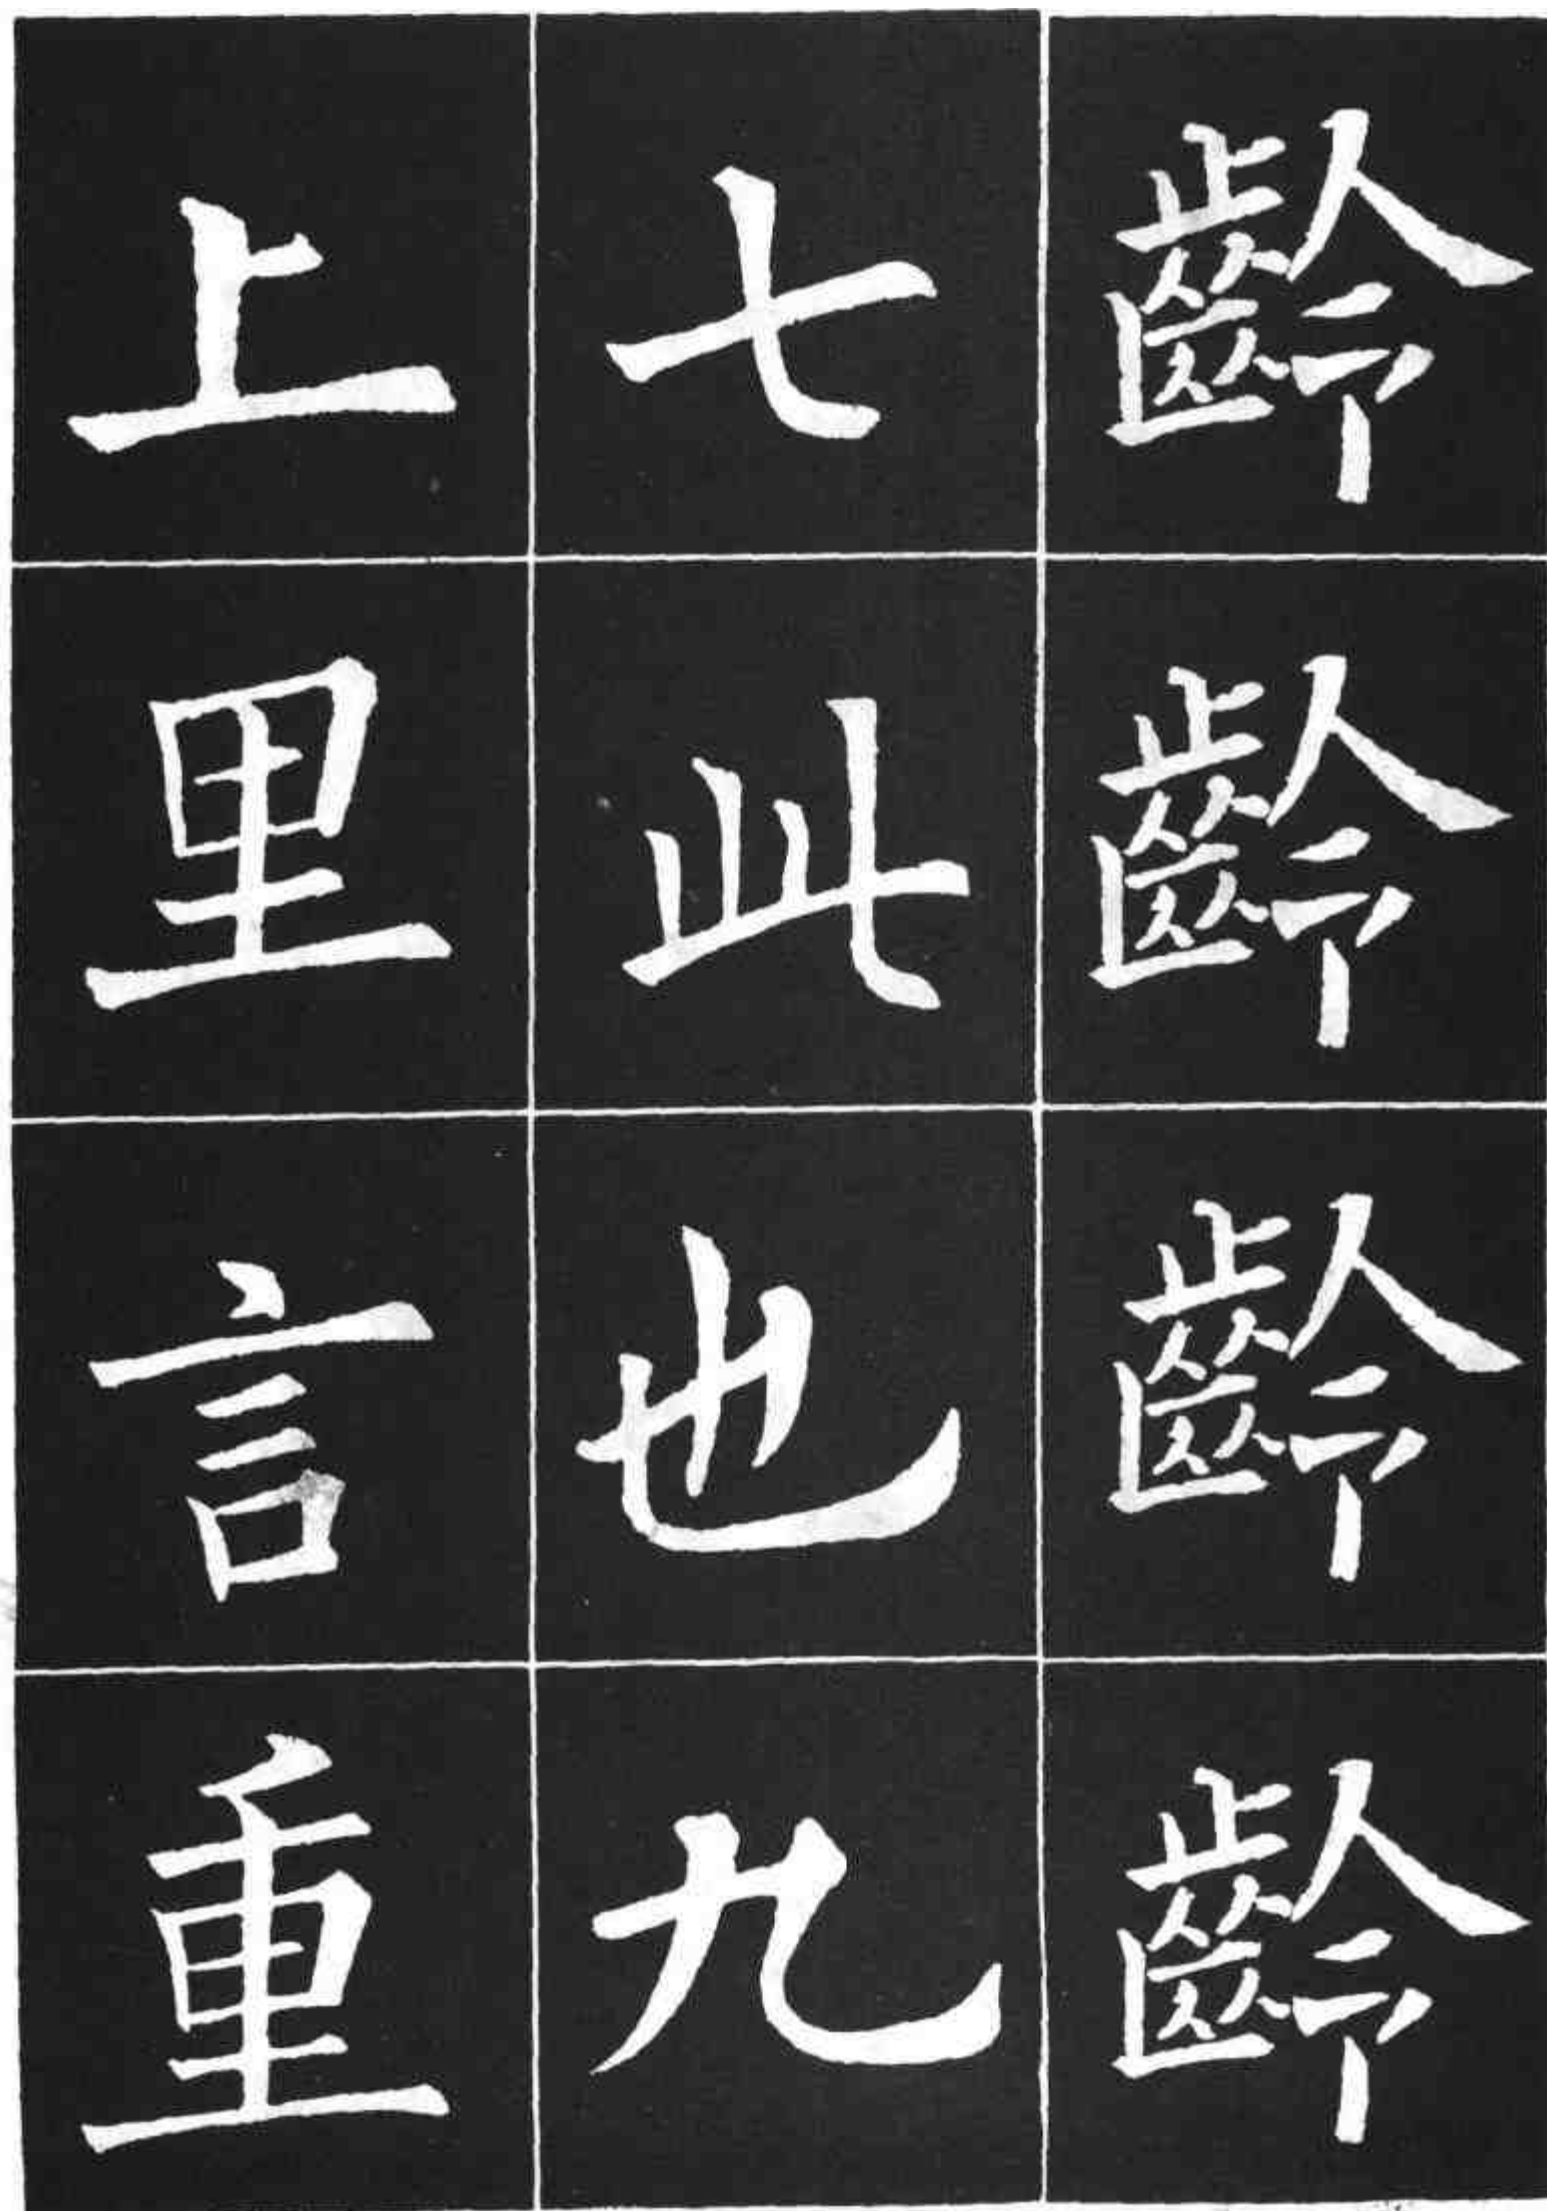 齡齡齡齡
七此也九
上里言重